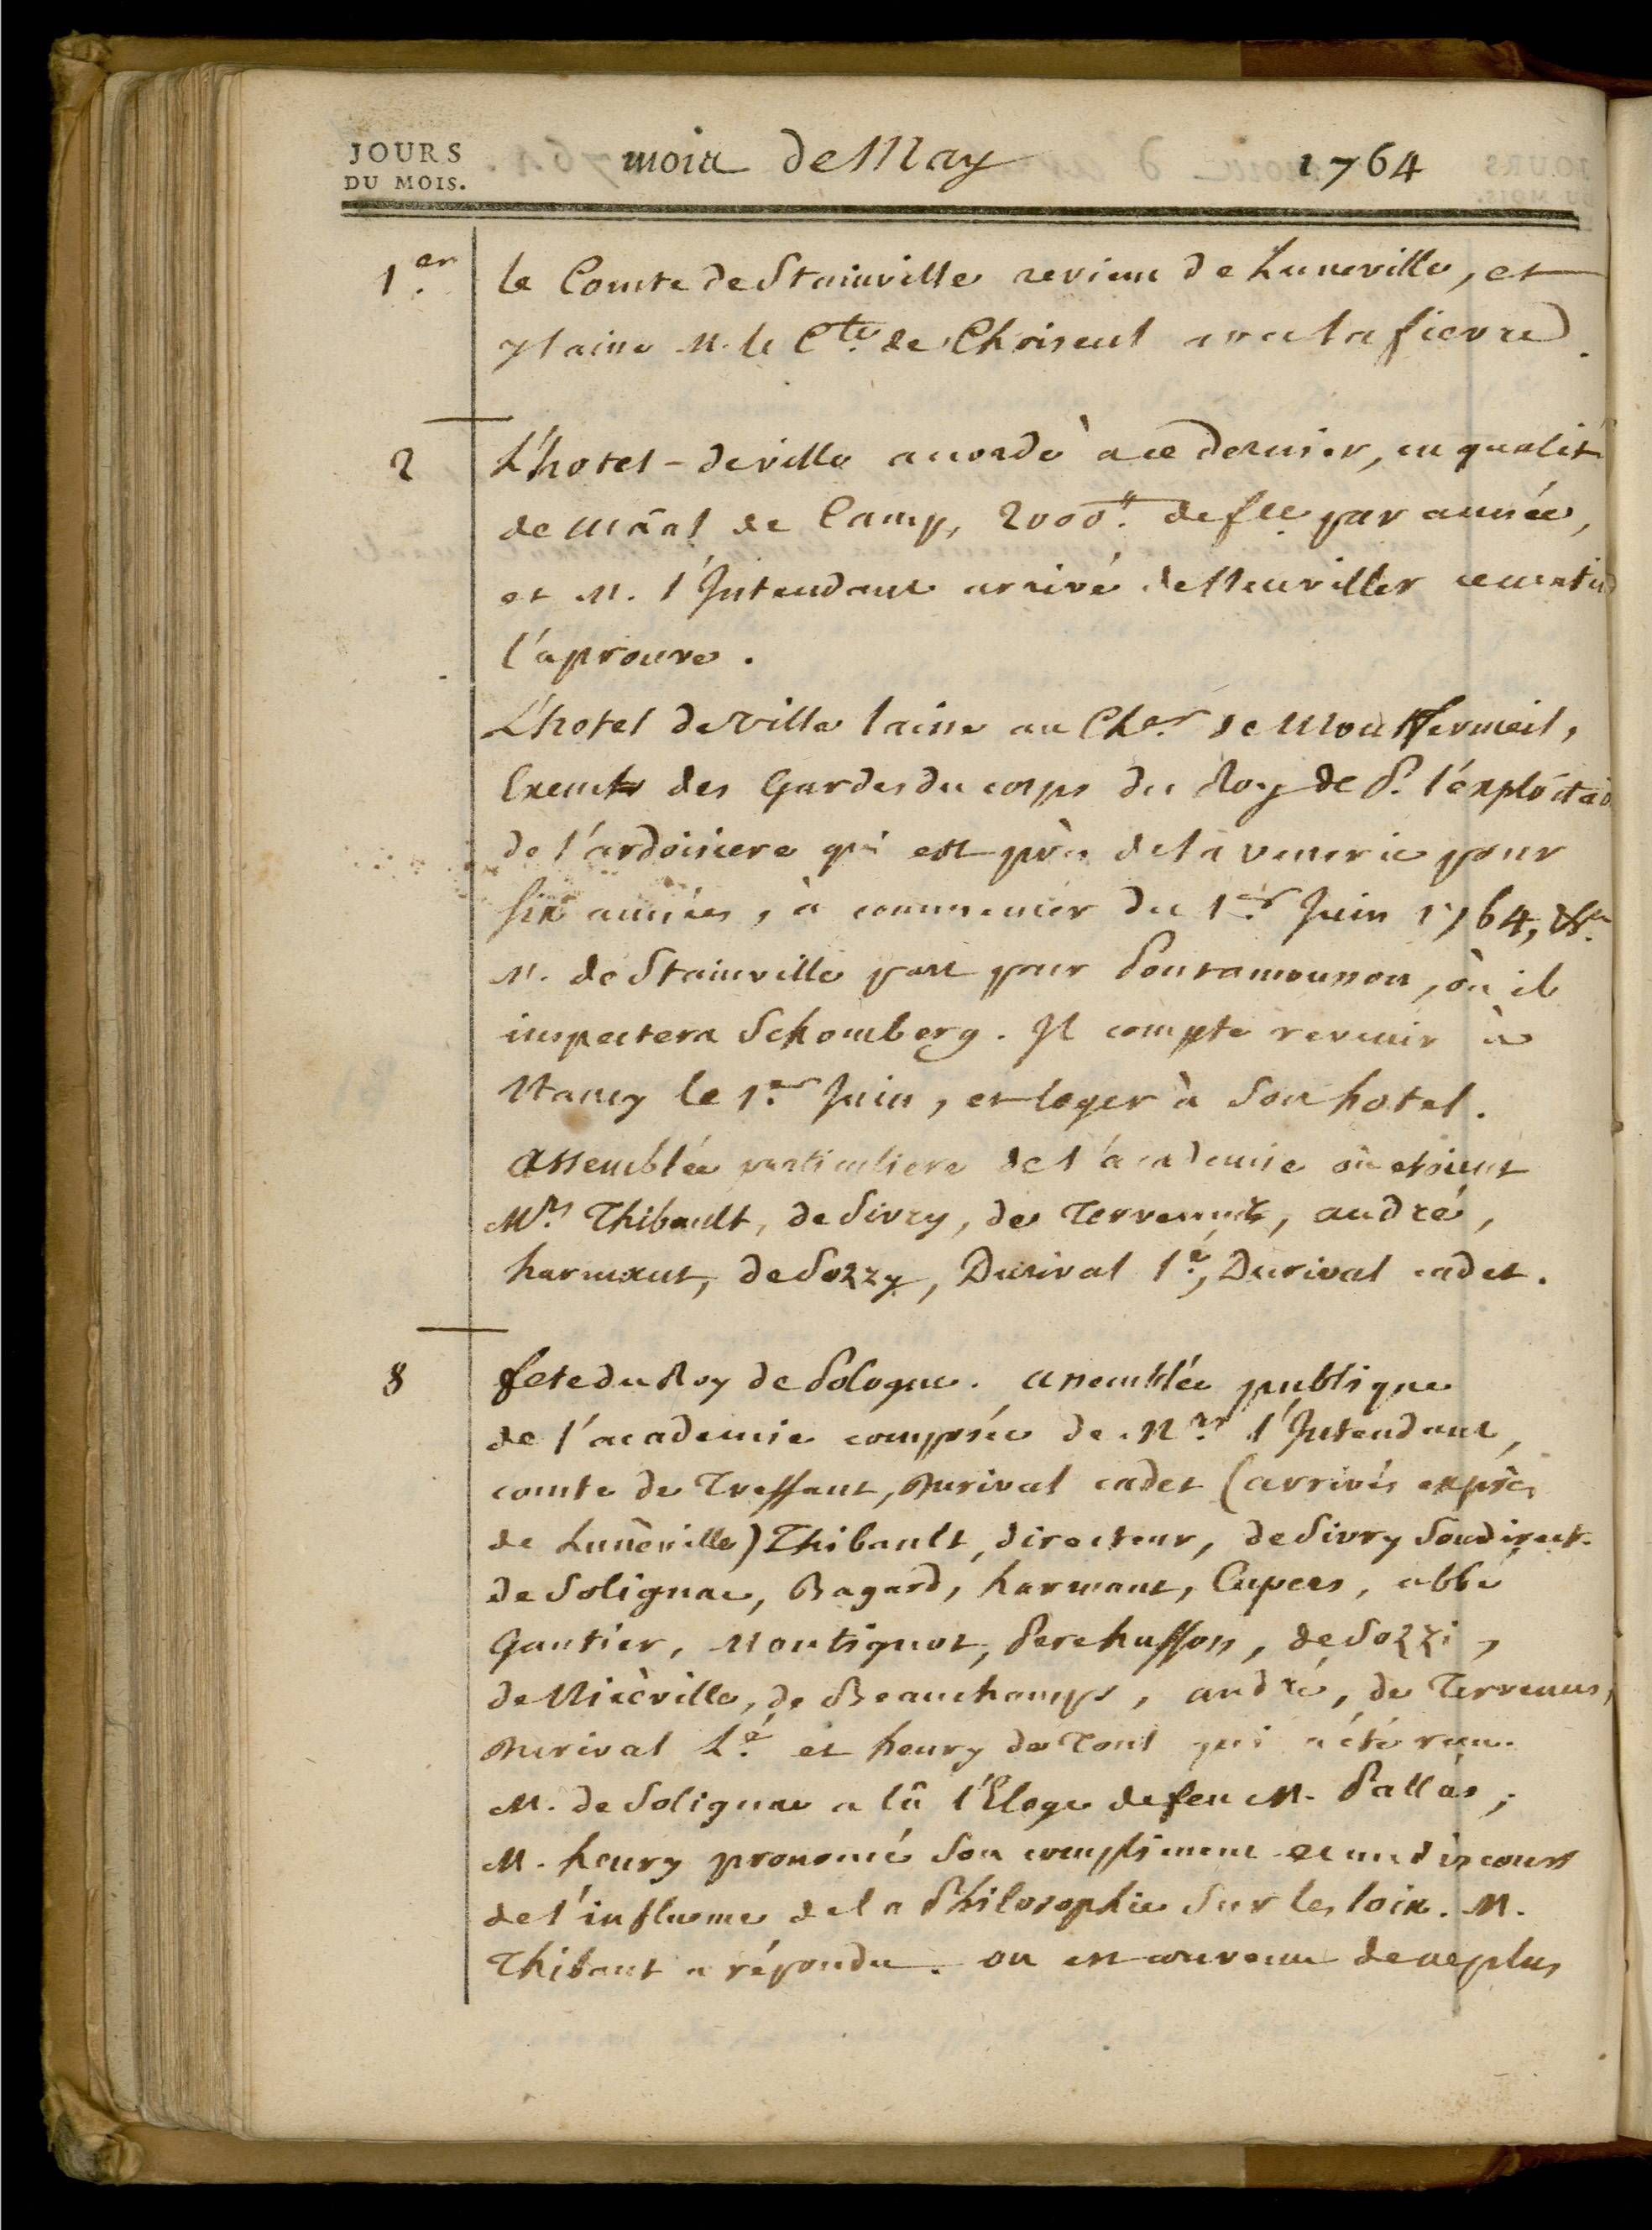 JOURS
DU MOIS.
mois de May 1764
1.er le Comte de Stainville revient de Luneville, et
y laisse M. le C.te de Choiseul avec la fievre.
2 L'hotel-de ville accorde à ce dernier, en qualité
de maãl de Camp, 2000.# de fce par année,
et M. l'Intendant arrivé de Neuviller ce matin
l'aprouve.
L'hotel de Ville laisse au Ch.er de Montfermeil,
Exempt des Gardes du corps du Roy de P. l'exploitaõn
de l'ardoisiere qui est près de la venerie pour
six années, à commencer du 1.er Juin 1764, &.a
M. de Stainville part pour Pontamousson, où il
inspectera Schomberg. Il compte revenir à
Nancy le 1.er Juin, et loger à son hotel.
Assemblée particuliere de l'academie où etoient
M.rs Thibault, de Sivry, de Tervenus, andré,
harmant, de Sozzy, Durival l'é., Durival cadet.
8 fete du Roy de Pologne. assemblée publique
de l'academie composée de M.rs l'Intendant,
comte de Tressant, Durival cadet (arrivés exprès
de Lunéville) Thibault, directeur, de Sivry Soudirect.
de Solignac, Bagard, harmant, Cupers, abbé
Gautier, Montignot, Pere husson, de Sozzi,
de Niceville, de Beauchamps, andré, de Tervenus,
Durival L'é. et henry de Toul qui a été reçu.
M. de Solignac a lû l'Eloge de feu M. Pallas,
M. henry prononcé son compliment et un discours
de l'influence de la Philosophie sur les loix. M.
Thibaut a répondu. on est convenu de ne plus